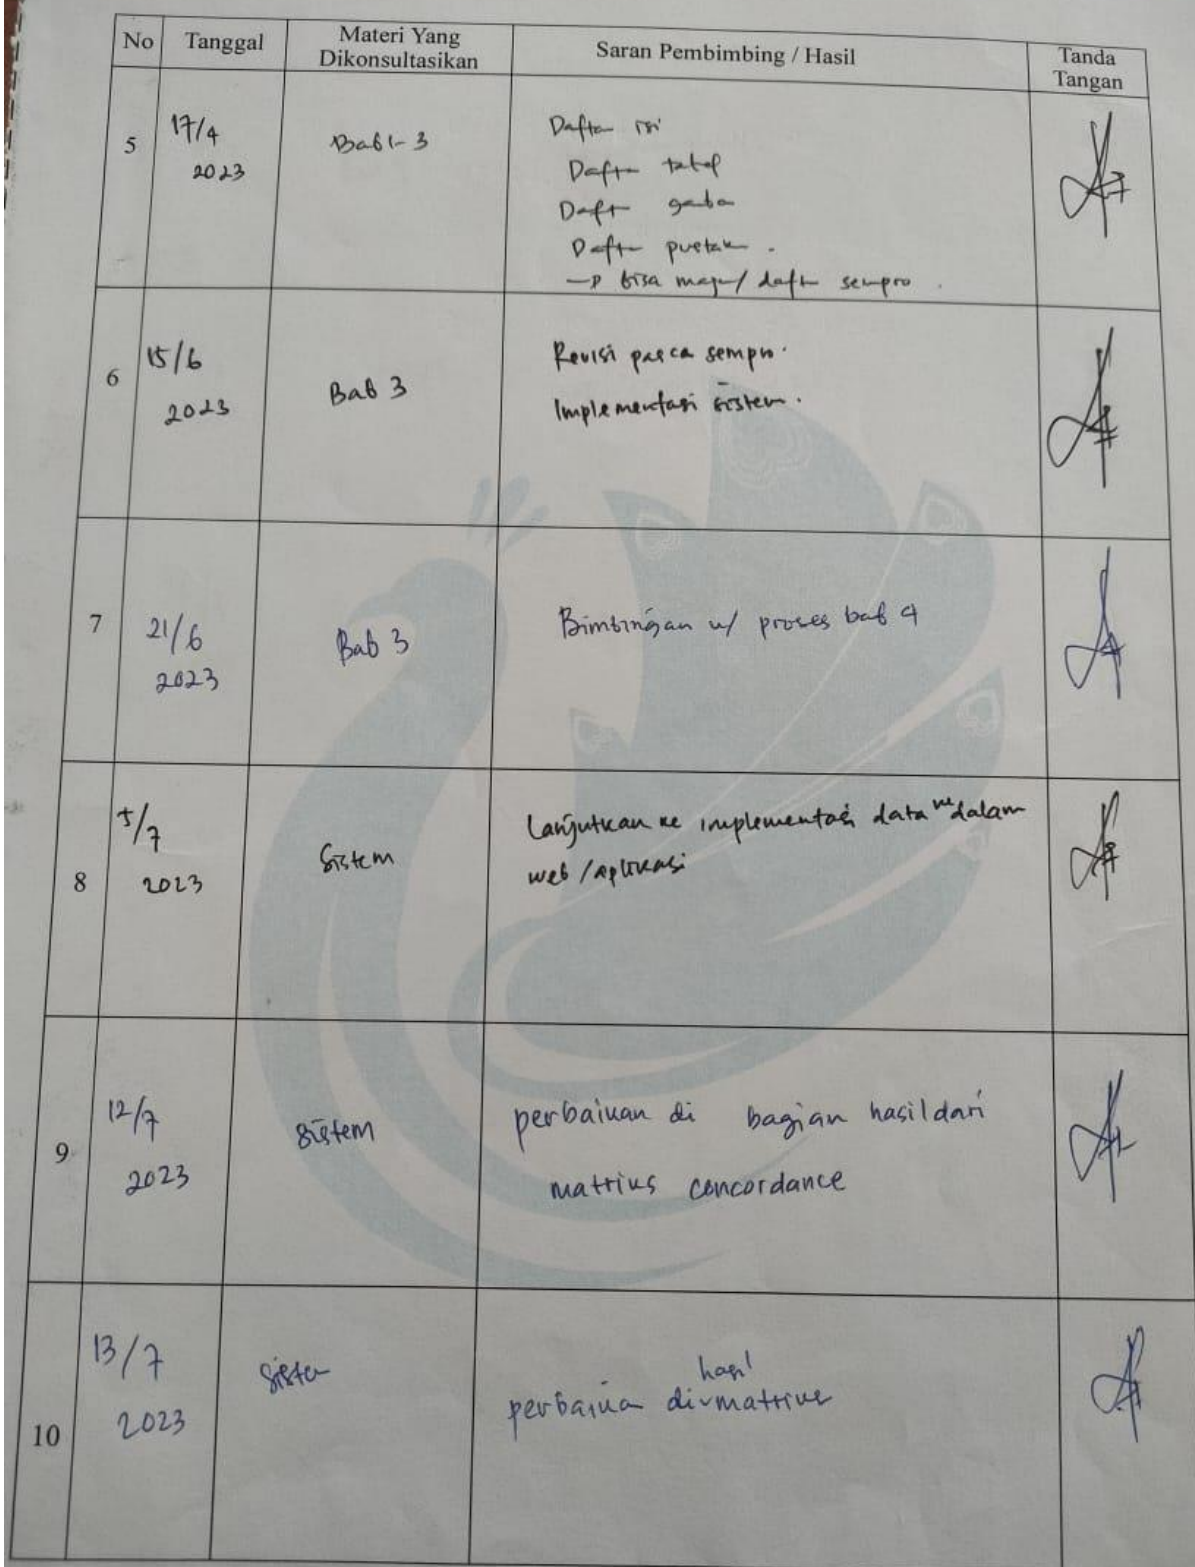 No Tanggal Materi Yang Dikonsultasikan Saran Pembimbing / Hasil Tanda Tangan
5 17/4 2023 Bab 1-3
Daftar isi
Daftar tabel
Daftar gambar
Daftar pustaka.
→ bisa maju/ daftar sempro.
6 15/6 2023 Bab 3
Revisi pasca sempro.
Implementasi sistem.
7 21/6 2023 Bab 3 Bimbingan u/ proses bab 4
8 5/7 2023 Sistem
Lanjutkan ke implementasi data ke dalam
web / aplikasi
9 12/7 2023 sistem
perbaikan di bagian hasil dari
mattriks concordance
10 13/7 2023 sistem
hasil
perbaikan di mattriks